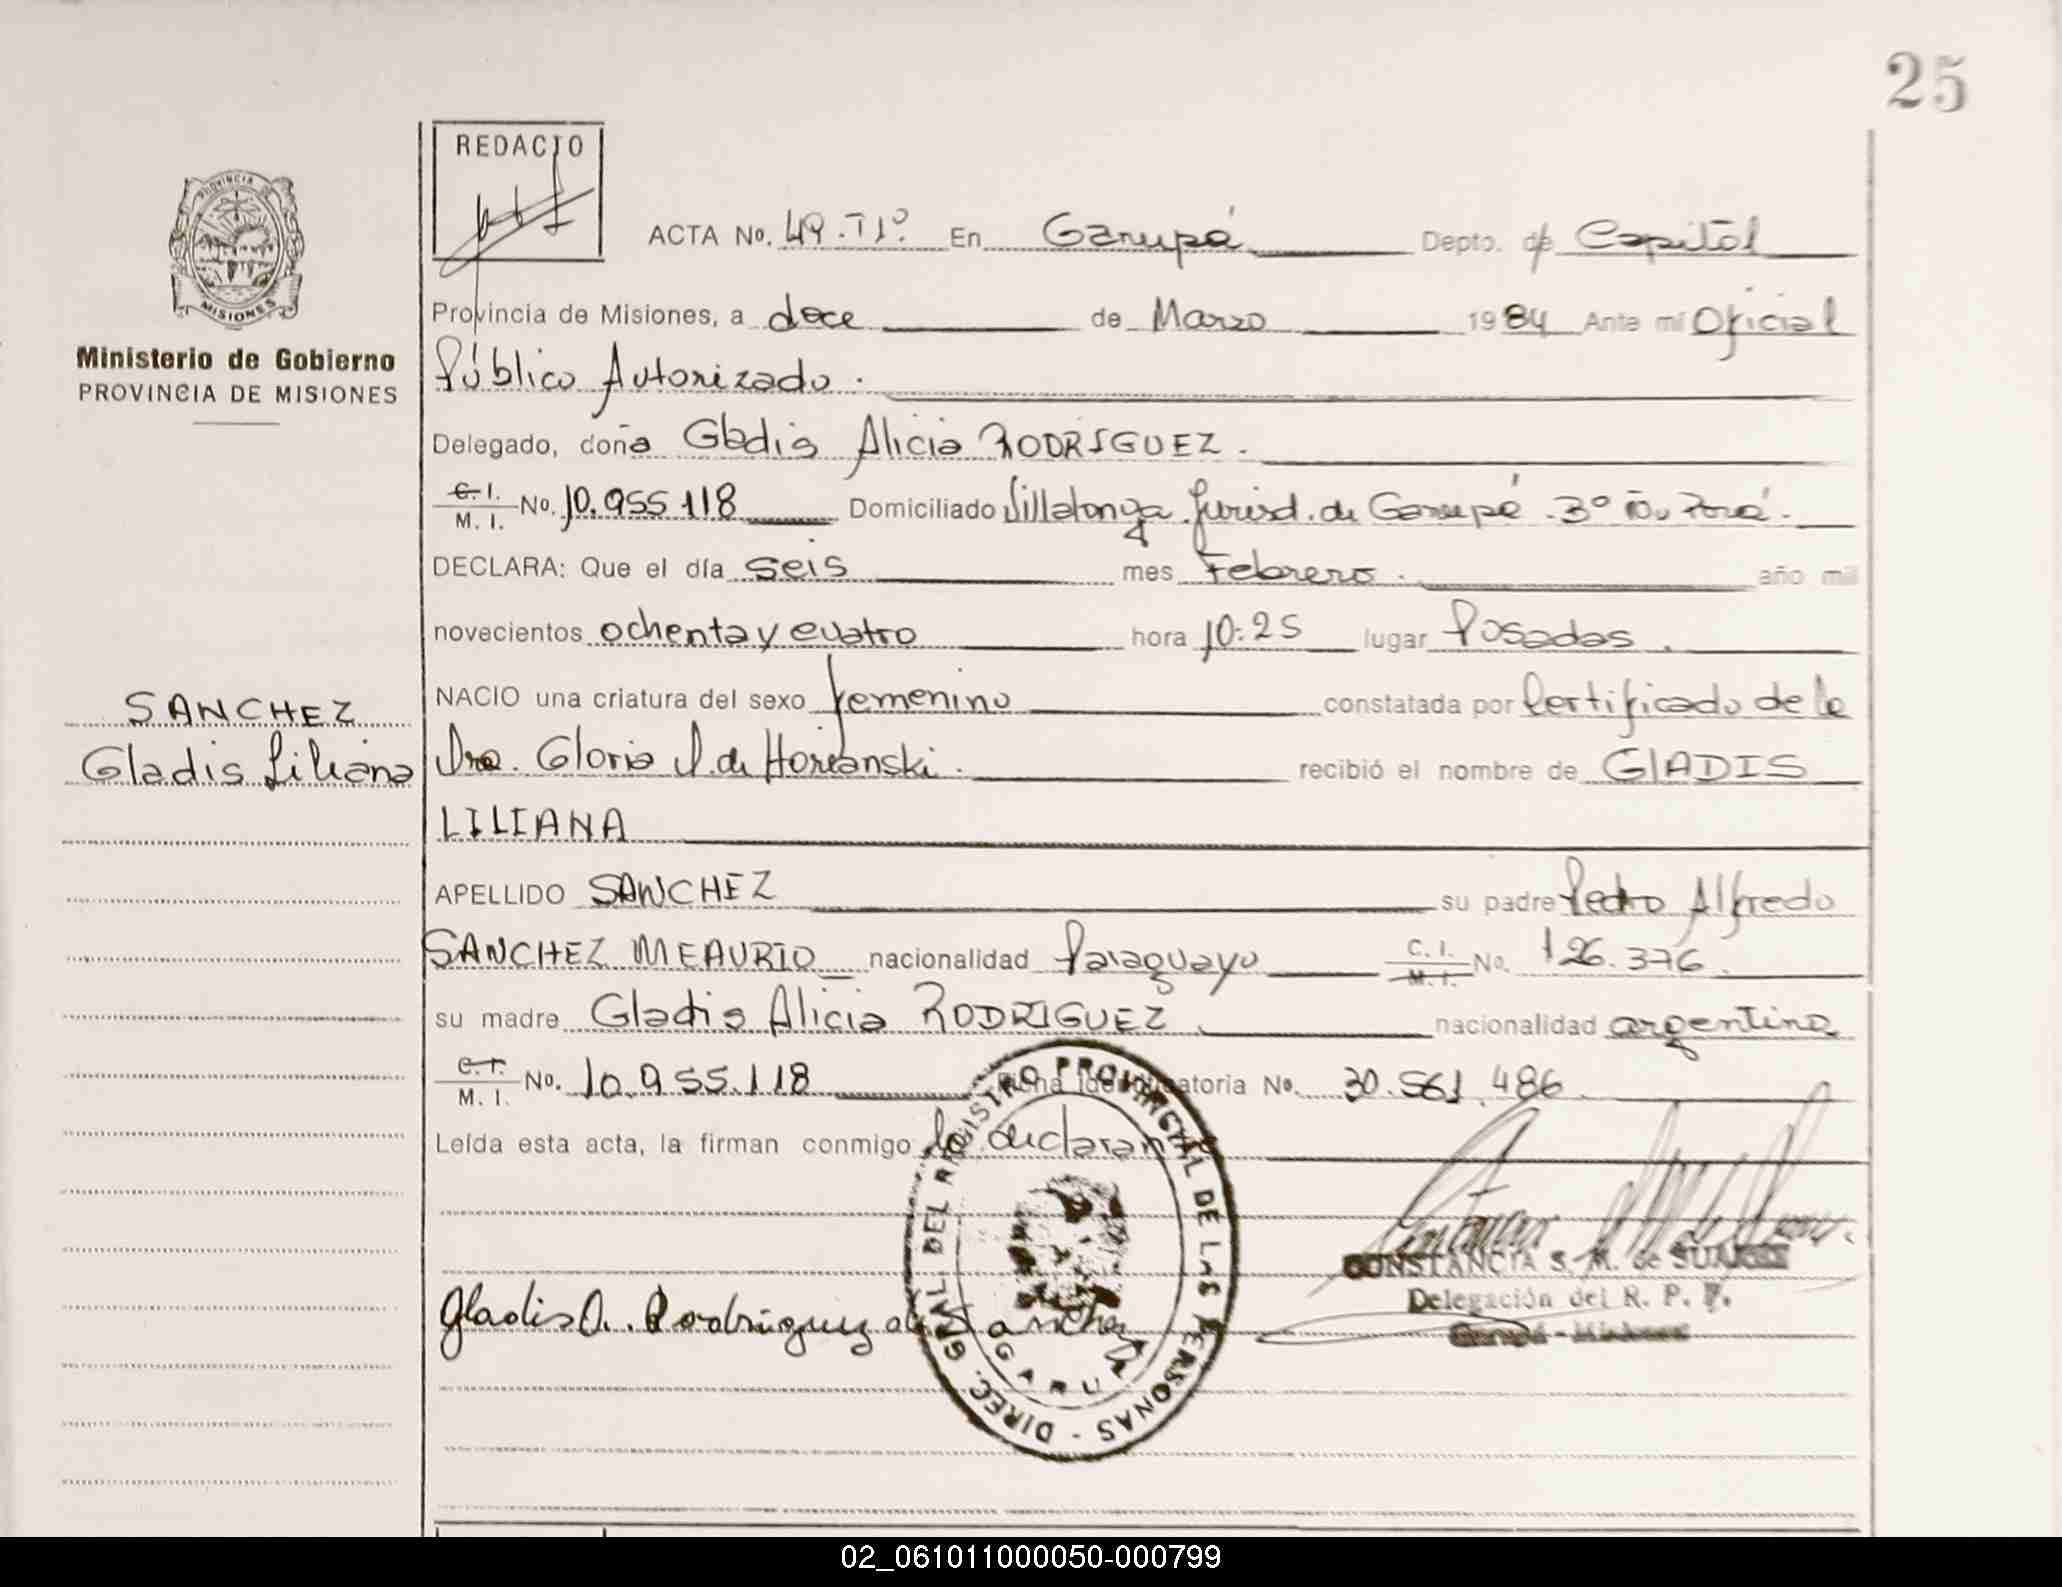 25
REDACTO
PROVINCIA DE
MISIONES
Ministerio de Gobierno
PROVINCIA DE MISIONES
ACTA No. 49.TIº. En Garupá Depto. de Capital
Provincia de Misiones, a doce de Marzo 1984 Ante mí Oficial
Público Autorizado.
Delegado, doña Gladis Alicia RODRIGUEZ.
C. I. M. I. No. 10.955 118 Domiciliado Villalonga Jurisd. de Garupá. 3º
DECLARA: Que el día seis mes Febrero. año mil
novecientos ochenta y cuatro hora 10:25 lugar Posadas.
SANCHEZ
Gladis Liliana
NACIO una criatura del sexo femenino constatada por Certificado de la
Dra. Gloria de recibió el nombre de GLADIS
LILIANA
APELLIDO SANCHEZ su padre Pedro Alfredo
SANCHEZ MEAURIO nacionalidad Paraguayo C. I. M. I. No. 126.376.
su madre Gladis Alicia RODRIGUEZ nacionalidad argentina
C. I. M. I. No. 10.955.118 Ficha Identificatoria No. 30.561.486.
Leída esta acta, la firman conmigo la declaran
DIREC. GRAL. DEL REGISTRO PROVINCIAL DE LAS PERSONAS -
GARUPA
Gladis A. Rodriguez de Sanchez
CONSTANCIA S. M. de
Delegación del R. P. P.
Garupá - Misiones
02_061011000050-000799